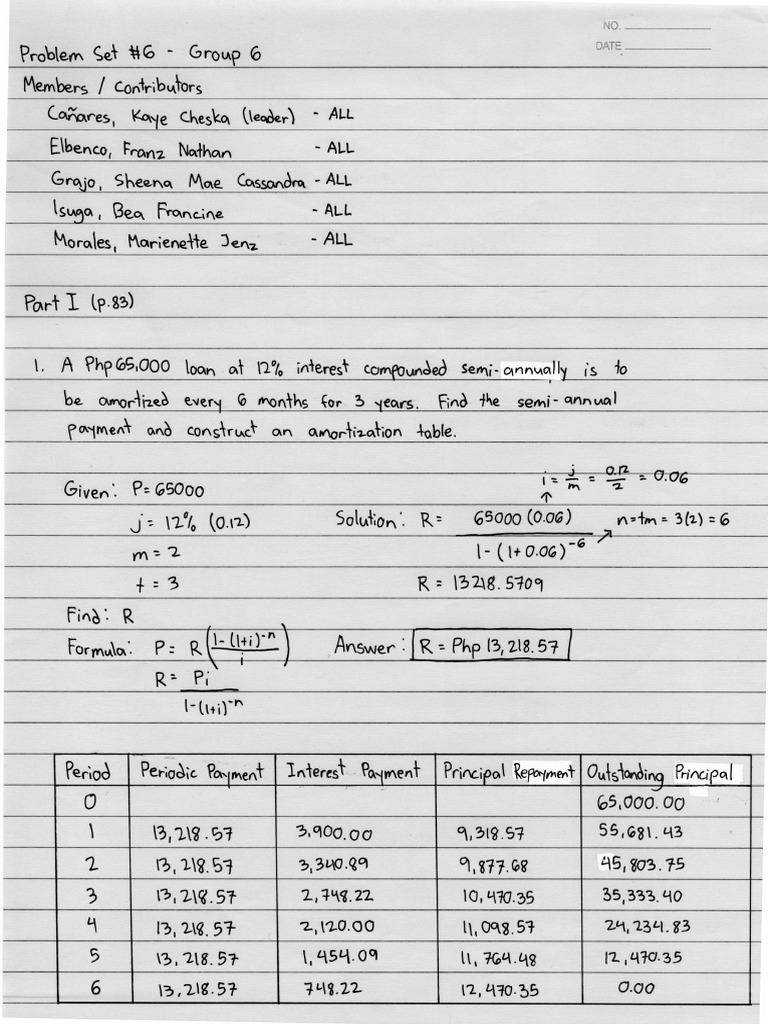 NO.
DATE
Problem Set #6 - Group 6
Members / Contributors
Cañares, Kaye Cheska (leader) - ALL
Elbenco, Franz Nathan - ALL
Grajo, Sheena Mae Cassandra - ALL
Isuga, Bea Francine - ALL
Morales, Marienette Jenz - ALL
Part I (p.83)
1. A Php 65,000 loan at 12% interest compounded semi-annually is to
be amortized every 6 months for 3 years. Find the semi-annual
payment and construct an amortization table.
i = j/m = 0.12/2 = 0.06
Given: P = 65000
j = 12% (0.12) Solution: R = 65000 (0.06) / 1-(1+0.06)^-6 n=tm = 3(2) = 6
m = 2
t = 3 R = 13218.5709
Find: R
Formula: P = R(1-(1+i)^-n / i) Answer: R = Php 13,218.57
R = Pi / 1-(1+i)^-n
Period Periodic Payment Interest Payment Principal Repayment Outstanding Principal
0 65,000.00
1 13,218.57 3,900.00 9,318.57 55,681.43
2 13,218.57 3,340.89 9,877.68 45,803.75
3 13,218.57 2,748.22 10,470.35 35,333.40
4 13,218.57 2,120.00 11,098.57 24,234.83
5 13,218.57 1,454.09 11,764.48 12,470.35
6 13,218.57 748.22 12,470.35 0.00